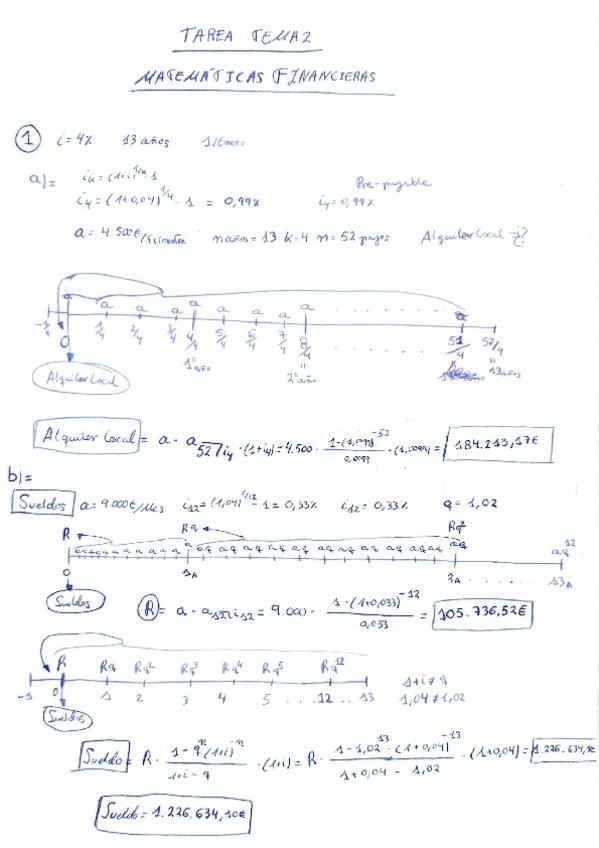 TAREA TEMA 2
MATEMÁTICAS FINANCIERAS
1 i = 4% 13 años 1/Enero
a)= iₖ = (1+i)^1/k - 1 Pre-pagable
i₄ = (1+0,04)^1/4 - 1 = 0,99% i₄ = 0,99%
a = 4500€/Trimestre n años = 13 k = 4 n = 52 pagos Alquiler Local → ¿?
a a a a a a a a a . . . . . . . . a
-1/4 0 1/4 2/4 3/4 4/4 5/4 6/4 7/4 8/4 51/4 52/4
1º año 2º año 13 años
Alquiler Local
Alquiler Local = a · a 52⌉i₄ · (1+i₄) = 4.500 · 1-(1,0099)^-52 / 0,0099 · (1,0099) = 184.213,17€
b)=
Sueldos a = 9.000€/Mes i₁₂ = (1,04)^1/12 - 1 = 0,33% i₁₂ = 0,33% q = 1,02
R Rq Rq²
a a a a a a a a aq aq aq aq aq aq aq aq aq aq aq aq¹²
0 1A 2A . . . . . . 13A
Sueldos R = a · a 12⌉i₁₂ = 9.000 · 1-(1+0,033)^-12 / 0,033 = 105.736,52€
R Rq Rq² Rq³ Rq⁴ Rq⁵ Rq¹² 1+i ≠ q
-1 0 1 2 3 4 5 ... 12 .. 13 1,04 ≠ 1,02
Sueldos
Sueldo = R · 1-qⁿ(1+i)^-n / 1+i-q · (1+i) = R · 1-1,02^13 · (1+0,04)^-13 / 1+0,04 - 1,02 · (1+0,04) = 1.226.634,1€
Sueldo = 1.226.634,10€